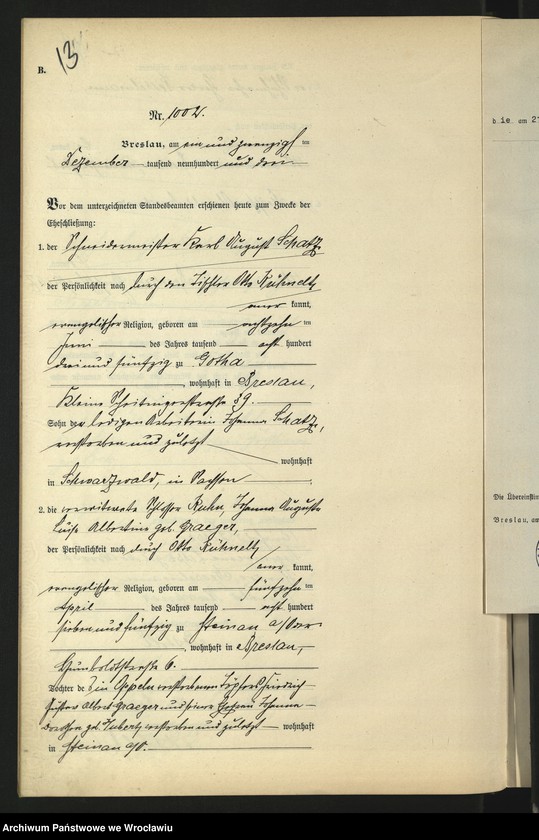 B.
13
Nr. 1002.
Breslau, am ein und zwanzigsten
Dezember tausend neunhundert und drei
Vor dem unterzeichneten Standesbeamten erschienen heute zum Zwecke der
Eheschließung:
1. der Schneidermeister Karl August Schatz,
der Persönlichkeit nach durch den Tischler Otto Kühnelt
aner kannt,
evangelischer Religion, geboren am achtzehn ten
Juni des Jahres tausend acht hundert
drei und fünfzig zu Gotha
, wohnhaft in Breslau,
Kleine Scheitnigerstraße 39.
Sohn der ledigen Arbeiterin Johanna Schatz,
verstorben und zuletzt
wohnhaft
in Schwarzwald, in Sachsen
2. die verwitwete Schlosser Kuhn, Johanna Auguste
Luise Albertine geb. Graeger,
der Persönlichkeit nach durch Otto Kühnelt
aner kannt,
evangelischer Religion, geboren am fünfzehn ten
April des Jahres tausend acht hundert
sieben und fünfzig zu Steinau a/Oder
, wohnhaft in Breslau,
Humboldtstraße 6.
Tochter des in Oppeln verstorbenen Töpfers Friedrich
Gustav Albert Graeger und seiner Ehefrau Johanna
Dorothea geb. verstorben und zuletzt wohnhaft
in Steinau a/O.
b. ie. am 2
Die Übereinstim
Breslau, am
Archiwum Państwowe we Wrocławiu